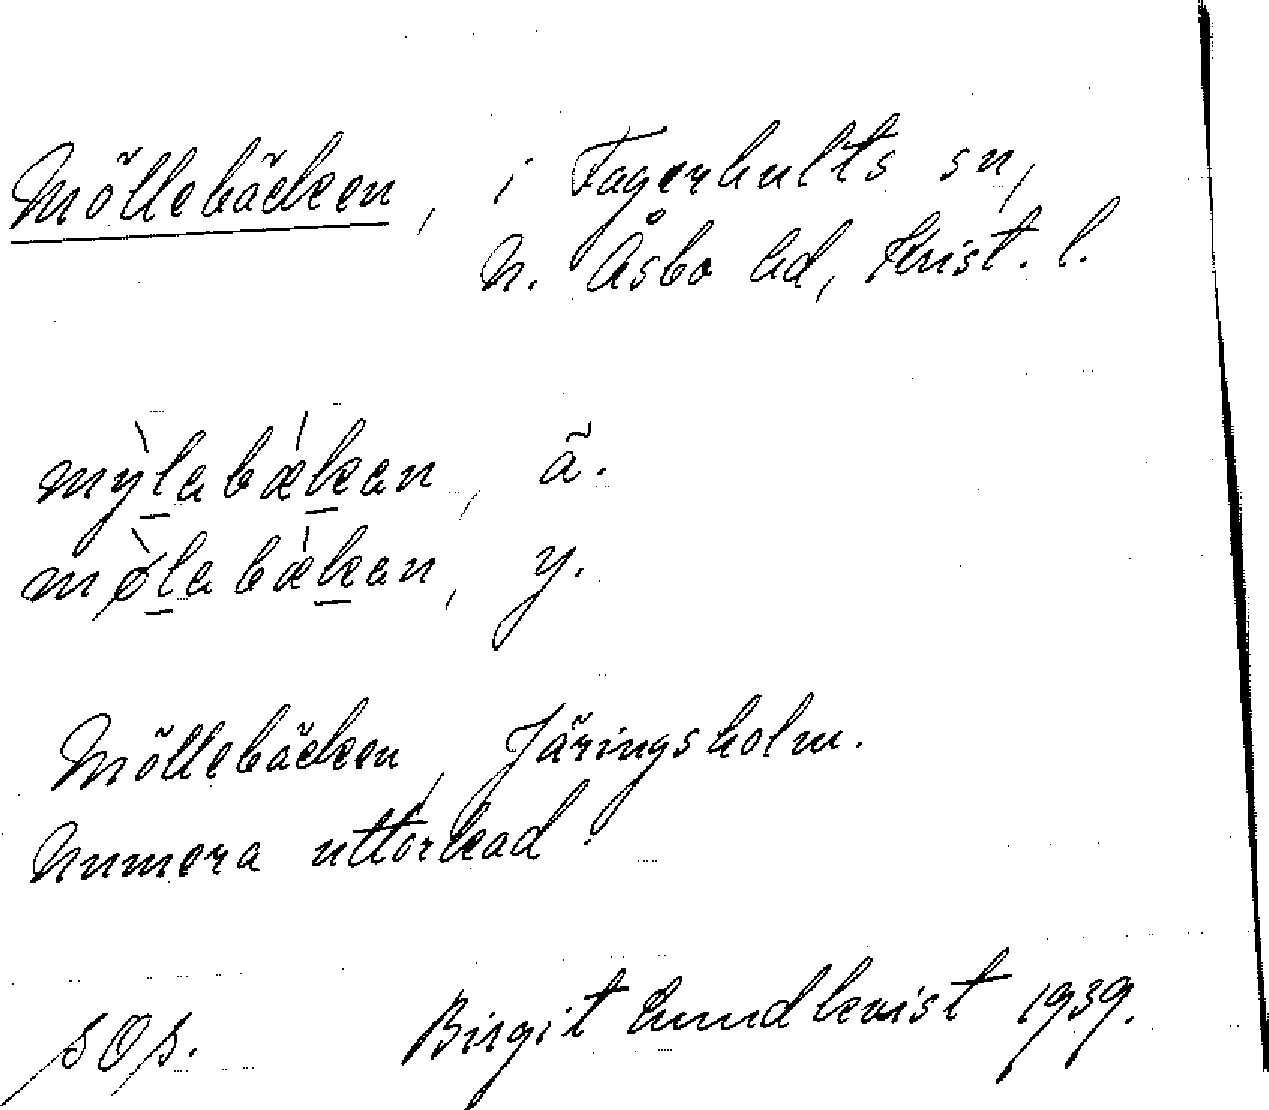 Möllebäcken, i Fagerhults sn,
N. Åsbo hd, Krist. l.
mỳlabækan, ä.
mø̀labækan, y.
Möllebäcken, Järingsholm.
Numera uttorkad.
sOs. Birgit Lundkvist 1939.